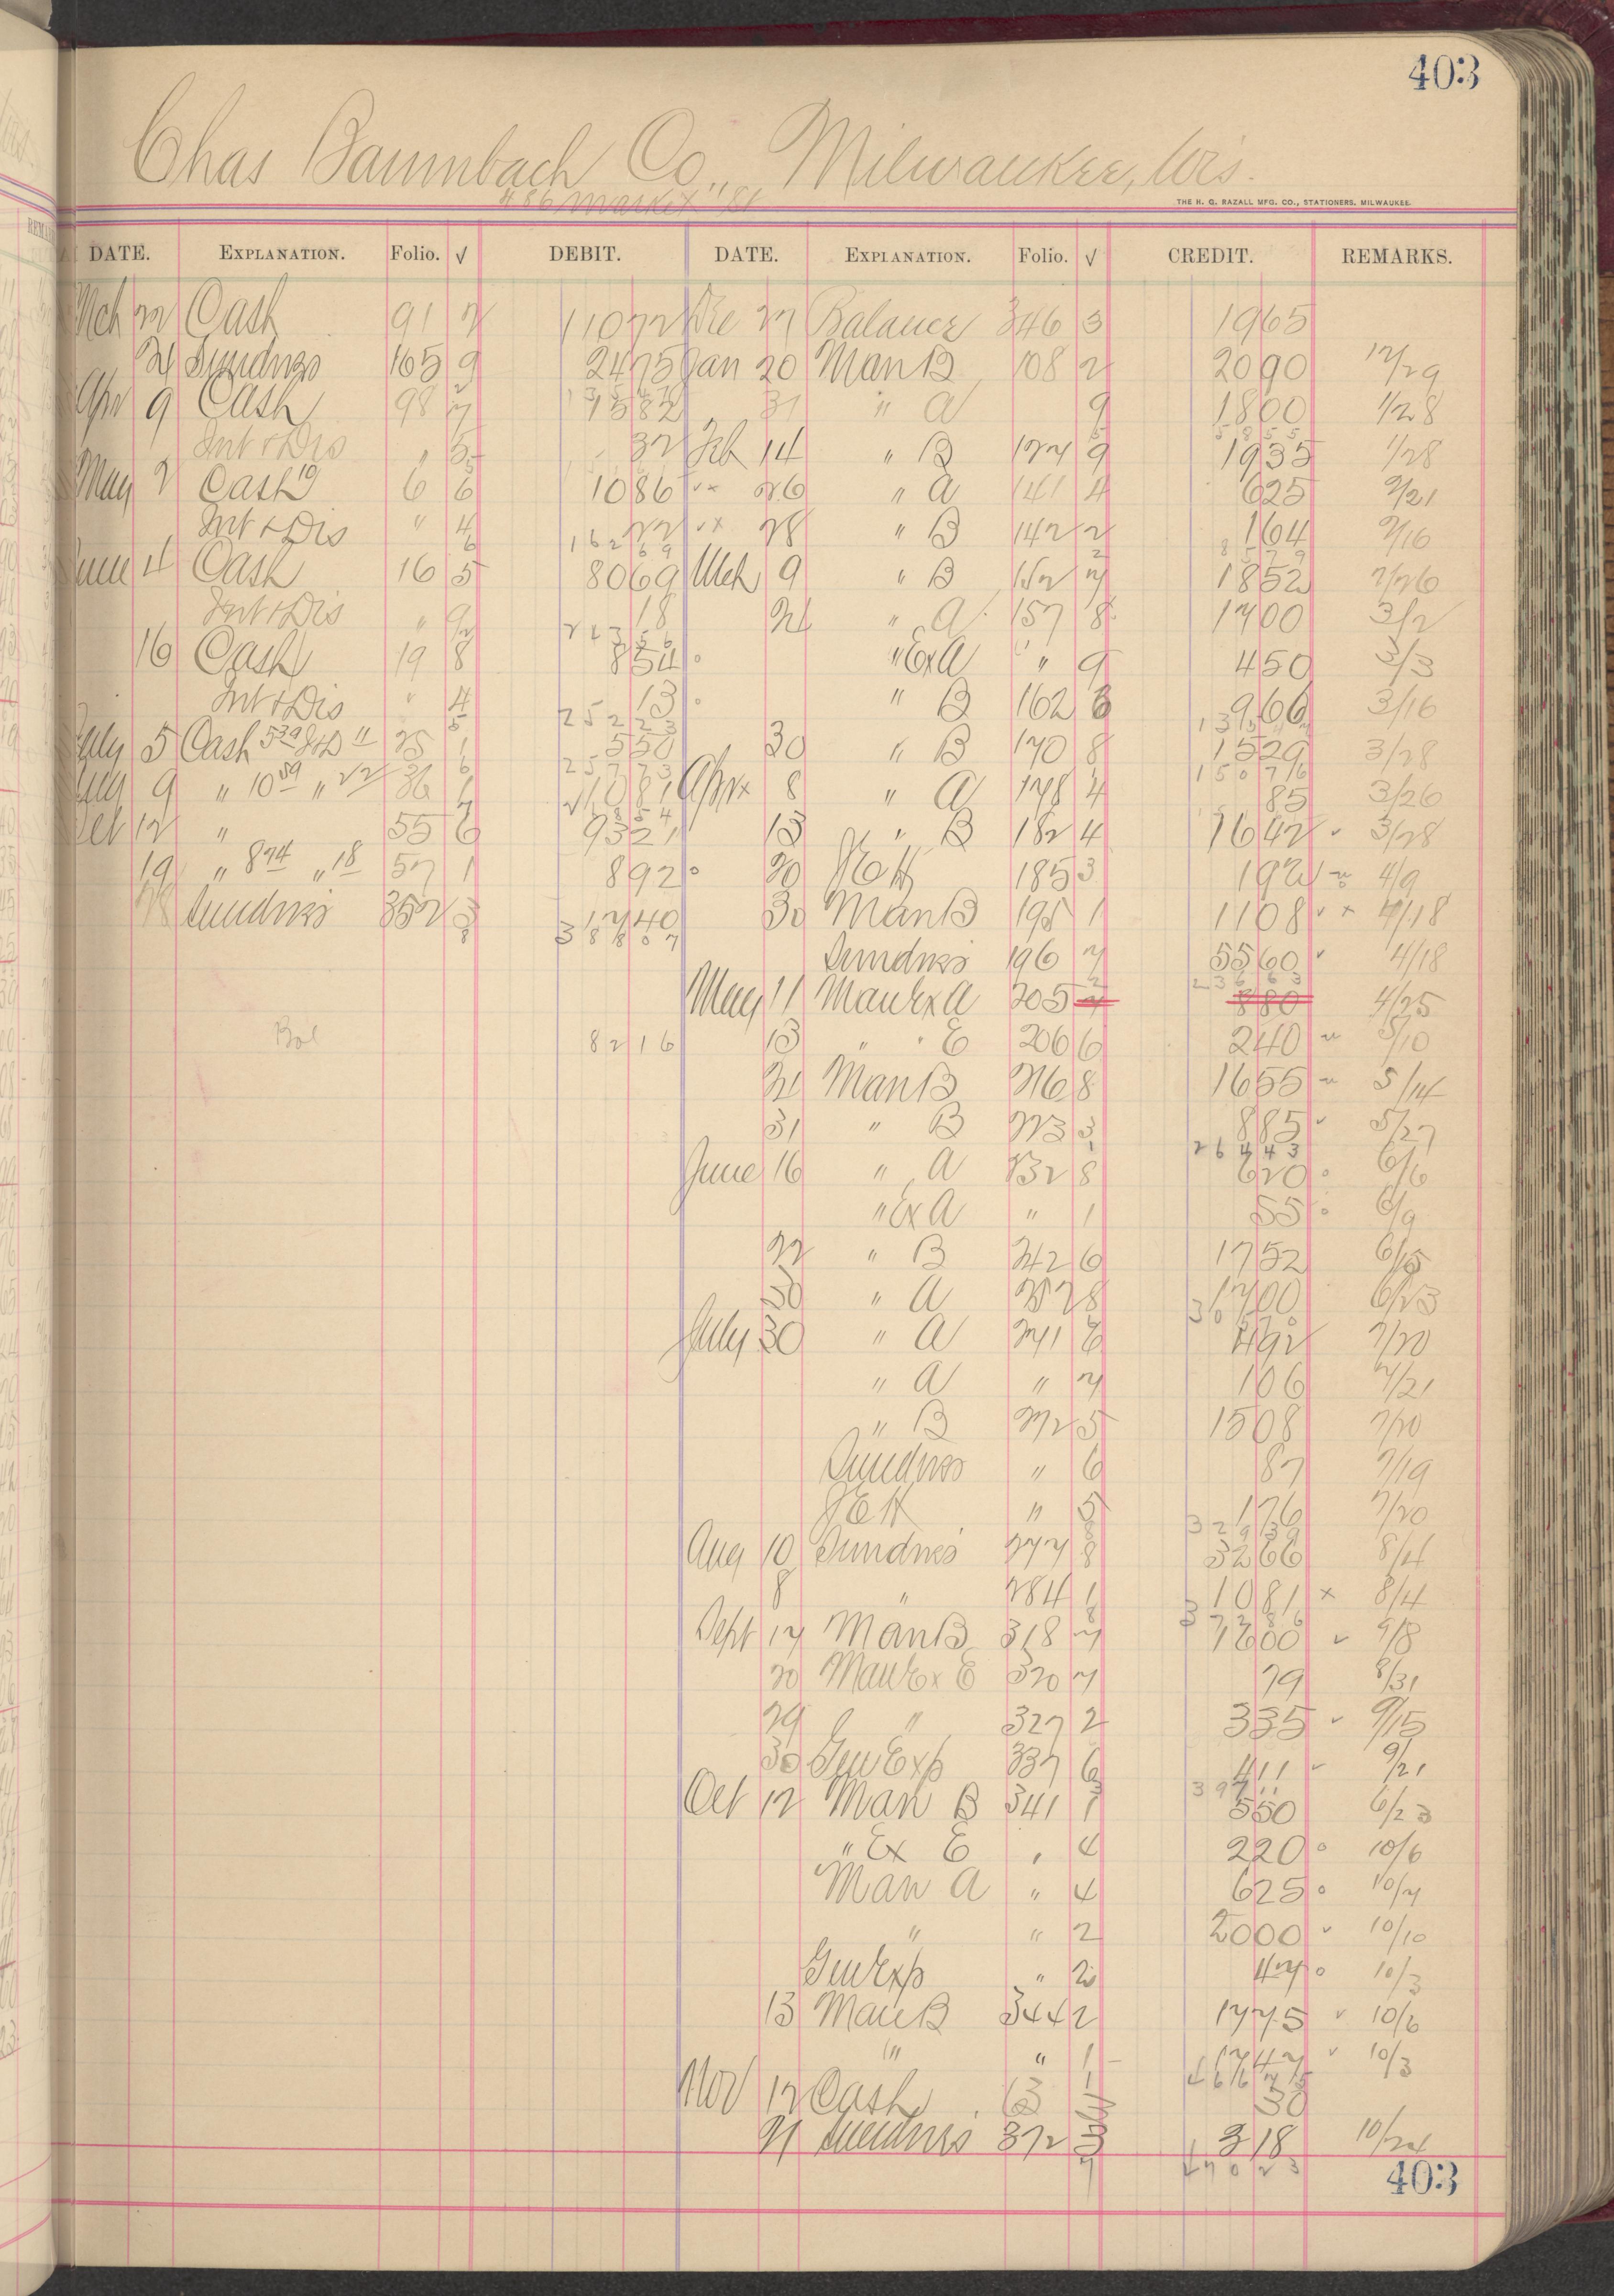 403
Chas Baumbach Co., Milwaukee, Wis.
486 Market St
THE H. G. RAZALL MFG. CO., STATIONERS, MILWAUKEE.
DATE. EXPLANATION. Folio. √ DEBIT. DATE. EXPLANATION. Folio. √ CREDIT. REMARKS.
Mch 22 Cash 91 7 11072 Dec 27 Balance 346 3 1965
31 Sundries 165 9 2475 Jan 20 Man B 108 2 2090 12/29
Apr 9 Cash 98 7 1582 31 " A 9 1800 1/28
Int & Dis " 5 32 Feb 14 " B 127 9 1935 1/28
May 2 Cash 19 6 6 1086 26 " A 141 4 625 2/21
Int & Dis " 4 22 28 " B 142 2 164 2/16
16269
June 4 Cash 16 5 8069 Mch 9 " B 152 7 1852 2/26
Int & Dis " 9 18 21 " A 157 8 1700 3/2
16 Cash 19 8 854 " Ex A " 9 450 3/3
Int & Dis " 4 13 " B 162 8 966 3/16
25223
July 5 Cash 539 J & D 11 25 1 550 30 " B 170 8 1529 3/28
25773 15076
Aug 9 " 1059 " 22 36 1 1081 Apr 8 " A 178 4 85 3/26
Oct 12 " 55 6 9321 13 " B 182 4 1642 3/28
19 " 874 " 18 57 1 892 20 J E H 185 3 192 4/9
Sundries 352 3 1740 30 Man B 195 1 1108 4/18
38807
Sundries 196 7 5560 4/18
23663
May 11 Man Ex A 205 880 4/25
Bal 8216 13 " " E 206 6 240 5/10
21 Man B 216 8 1655 5/14
31 " B 223 3 885 5/27
26443
June 16 " A 232 8 620 6/6
" Ex A " 1 55 6/9
22 " B 242 6 1752 6/15
30 " A 257 8 1700 6/23
July 30 " A 271 6 492 7/20
" A " 7 106 7/21
" B 272 5 1508 7/20
Sundries " 6 87 7/19
J E H " 5 176 7/20
32939
Aug 10 Sundries 277 8 3266 8/4
8 " 284 1 1081 8/4
37286
Sept 17 Man B 318 7 1600 9/8
20 Man Ex E 320 7 79 8/31
29 " 327 2 335 9/15
30 Gen Exp 337 6 411 9/21
39711
Oct 12 Man B 341 1 550 6/23
" Ex E " 4 220 10/6
Man A " 4 625 10/7
" " 2 2000 10/10
Gen Exp " 2 47 10/3
13 Man B 344 2 1775 10/6
" " 1 1747 10/3
46675
Nov 12 Cash 63 30
21 Sundries 372 318 10/24
47023
403